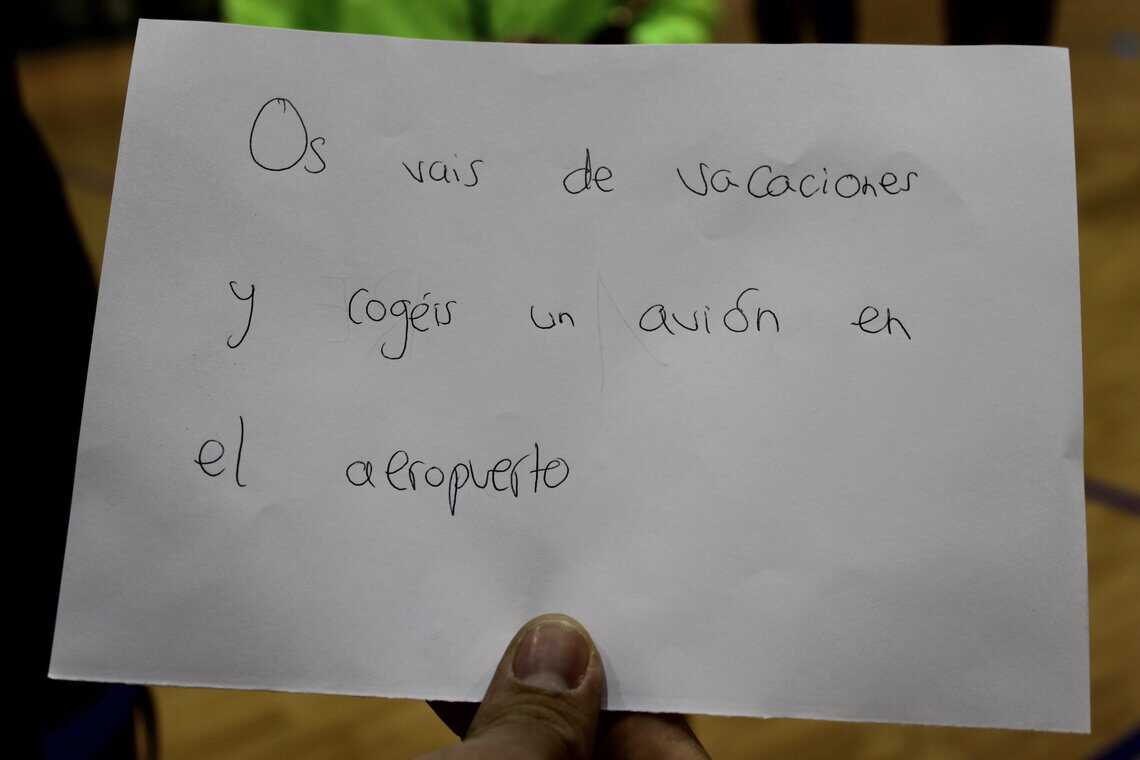 Os vais de vacaciones
y cogéis un avión en
el aeropuerto